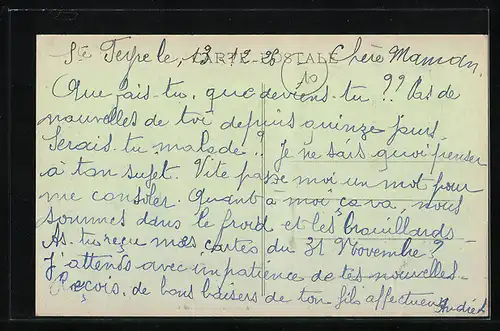 Ste 13-12-26 CARTE POSTALE Chère Maman,
10
Que fais-tu, que deviens-tu ?? Pas de
nouvelles de toi depuis quinze jours.
Serais-tu malade ? Je ne sais quoi penser
à ton sujet. Vite passe moi un mot pour
me consoler. Quant à moi ça va, nous
sommes dans le froid et les brouillards -
As-tu reçu mes cartes du 31 Novembre ?
J'attends avec impatience de tes nouvelles -
Reçois, de bons baisers de ton fils affectueux